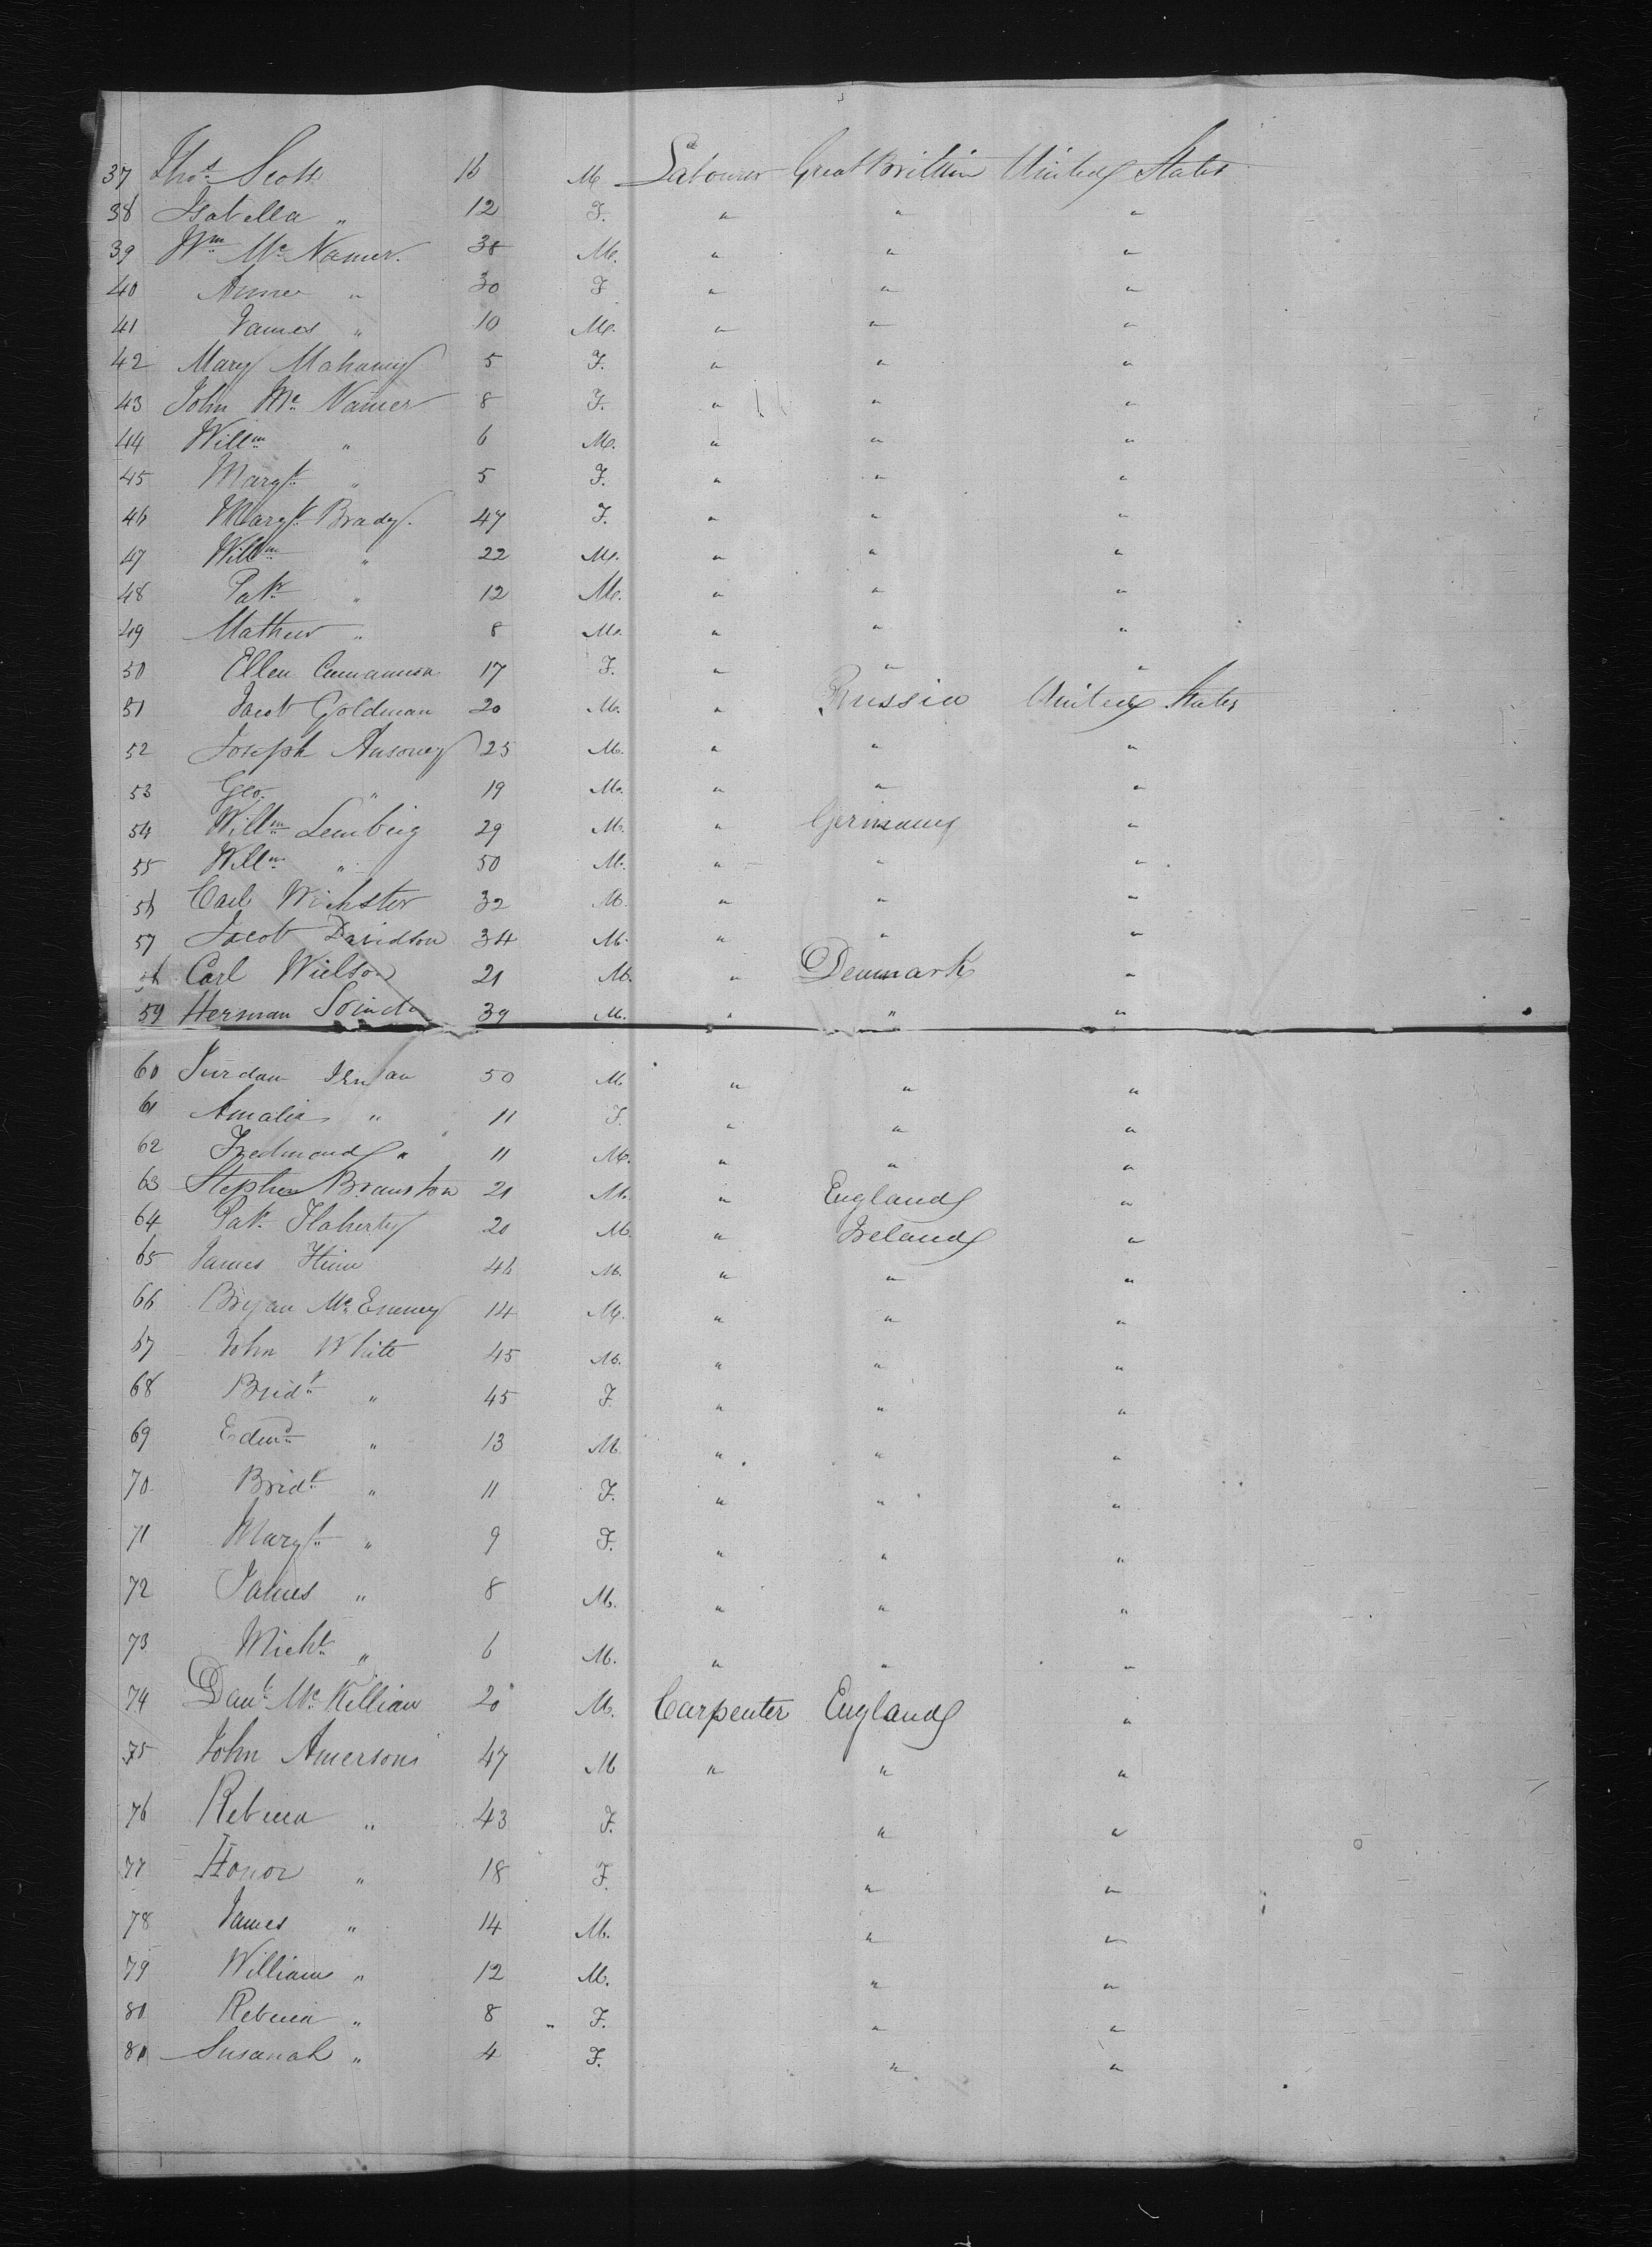 37 Thos. Scott 16 M Labourer Great Brittian United States
38 Isabella " 12 F. " " "
39 Wm. Mc. Namer. 38 M. " " "
40 Anne " 30 F " " "
41 James " 10 M. " " "
42 Mary Mahaney 5 F. " " "
43 John Mc. Namer 8 F. " " "
44 Willm. " 6 M. " " "
45 Margt. " 5 F. " " "
46 Margt. Brady. 47 F. " " "
47 Willm. " 22 M. " " "
48 Patk. " 12 M. " " "
49 Mathew " 8 M. " " "
50 Ellen 17 F. " " "
51 Jacob Goldman 20 M. " Russia United States
52 Joseph Ansoney 25 M. " " "
53 Geo. " 19 M. " " "
54 Willm. Lemberg 29 M. " Germany "
55 Willm. " 50 M. " " "
56 Carl Wichster 32 M. " " "
57 Jacob Davidson 34 M. " " "
58 Carl Wielson 21 M. " Denmark "
59 Herman 39 M. " " "
60 Jurdan 50 M " " "
61 Amalia " 11 F. " " "
62 Fredmond " 11 M. " " "
63 Stephen Branston 21 M. " England "
64 Patk. Flaherty 20 M. " Ireland "
65 James 46 M. " " "
66 Bryan Mc. Enney 14 M. " " "
67 John White 45 M. " " "
68 Bridt. " 45 F. " " "
69 Edmd. " 13 M. " " "
70 Bridt. " 11 F. " " "
71 Margt. " 9 F. " " "
72 James " 8 M. " " "
73 Michl. " 6 M. " " "
74 Danl. Mc. Killian 20 M. Carpenter England "
75 John Amersons 47 M " " "
76 Rebecca " 43 F. " "
77 Honor " 18 F. " "
78 James " 14 M. " "
79 William " 12 M. " "
80 Rebecca " 8 " F. " "
81 Susanah " 4 F. " "